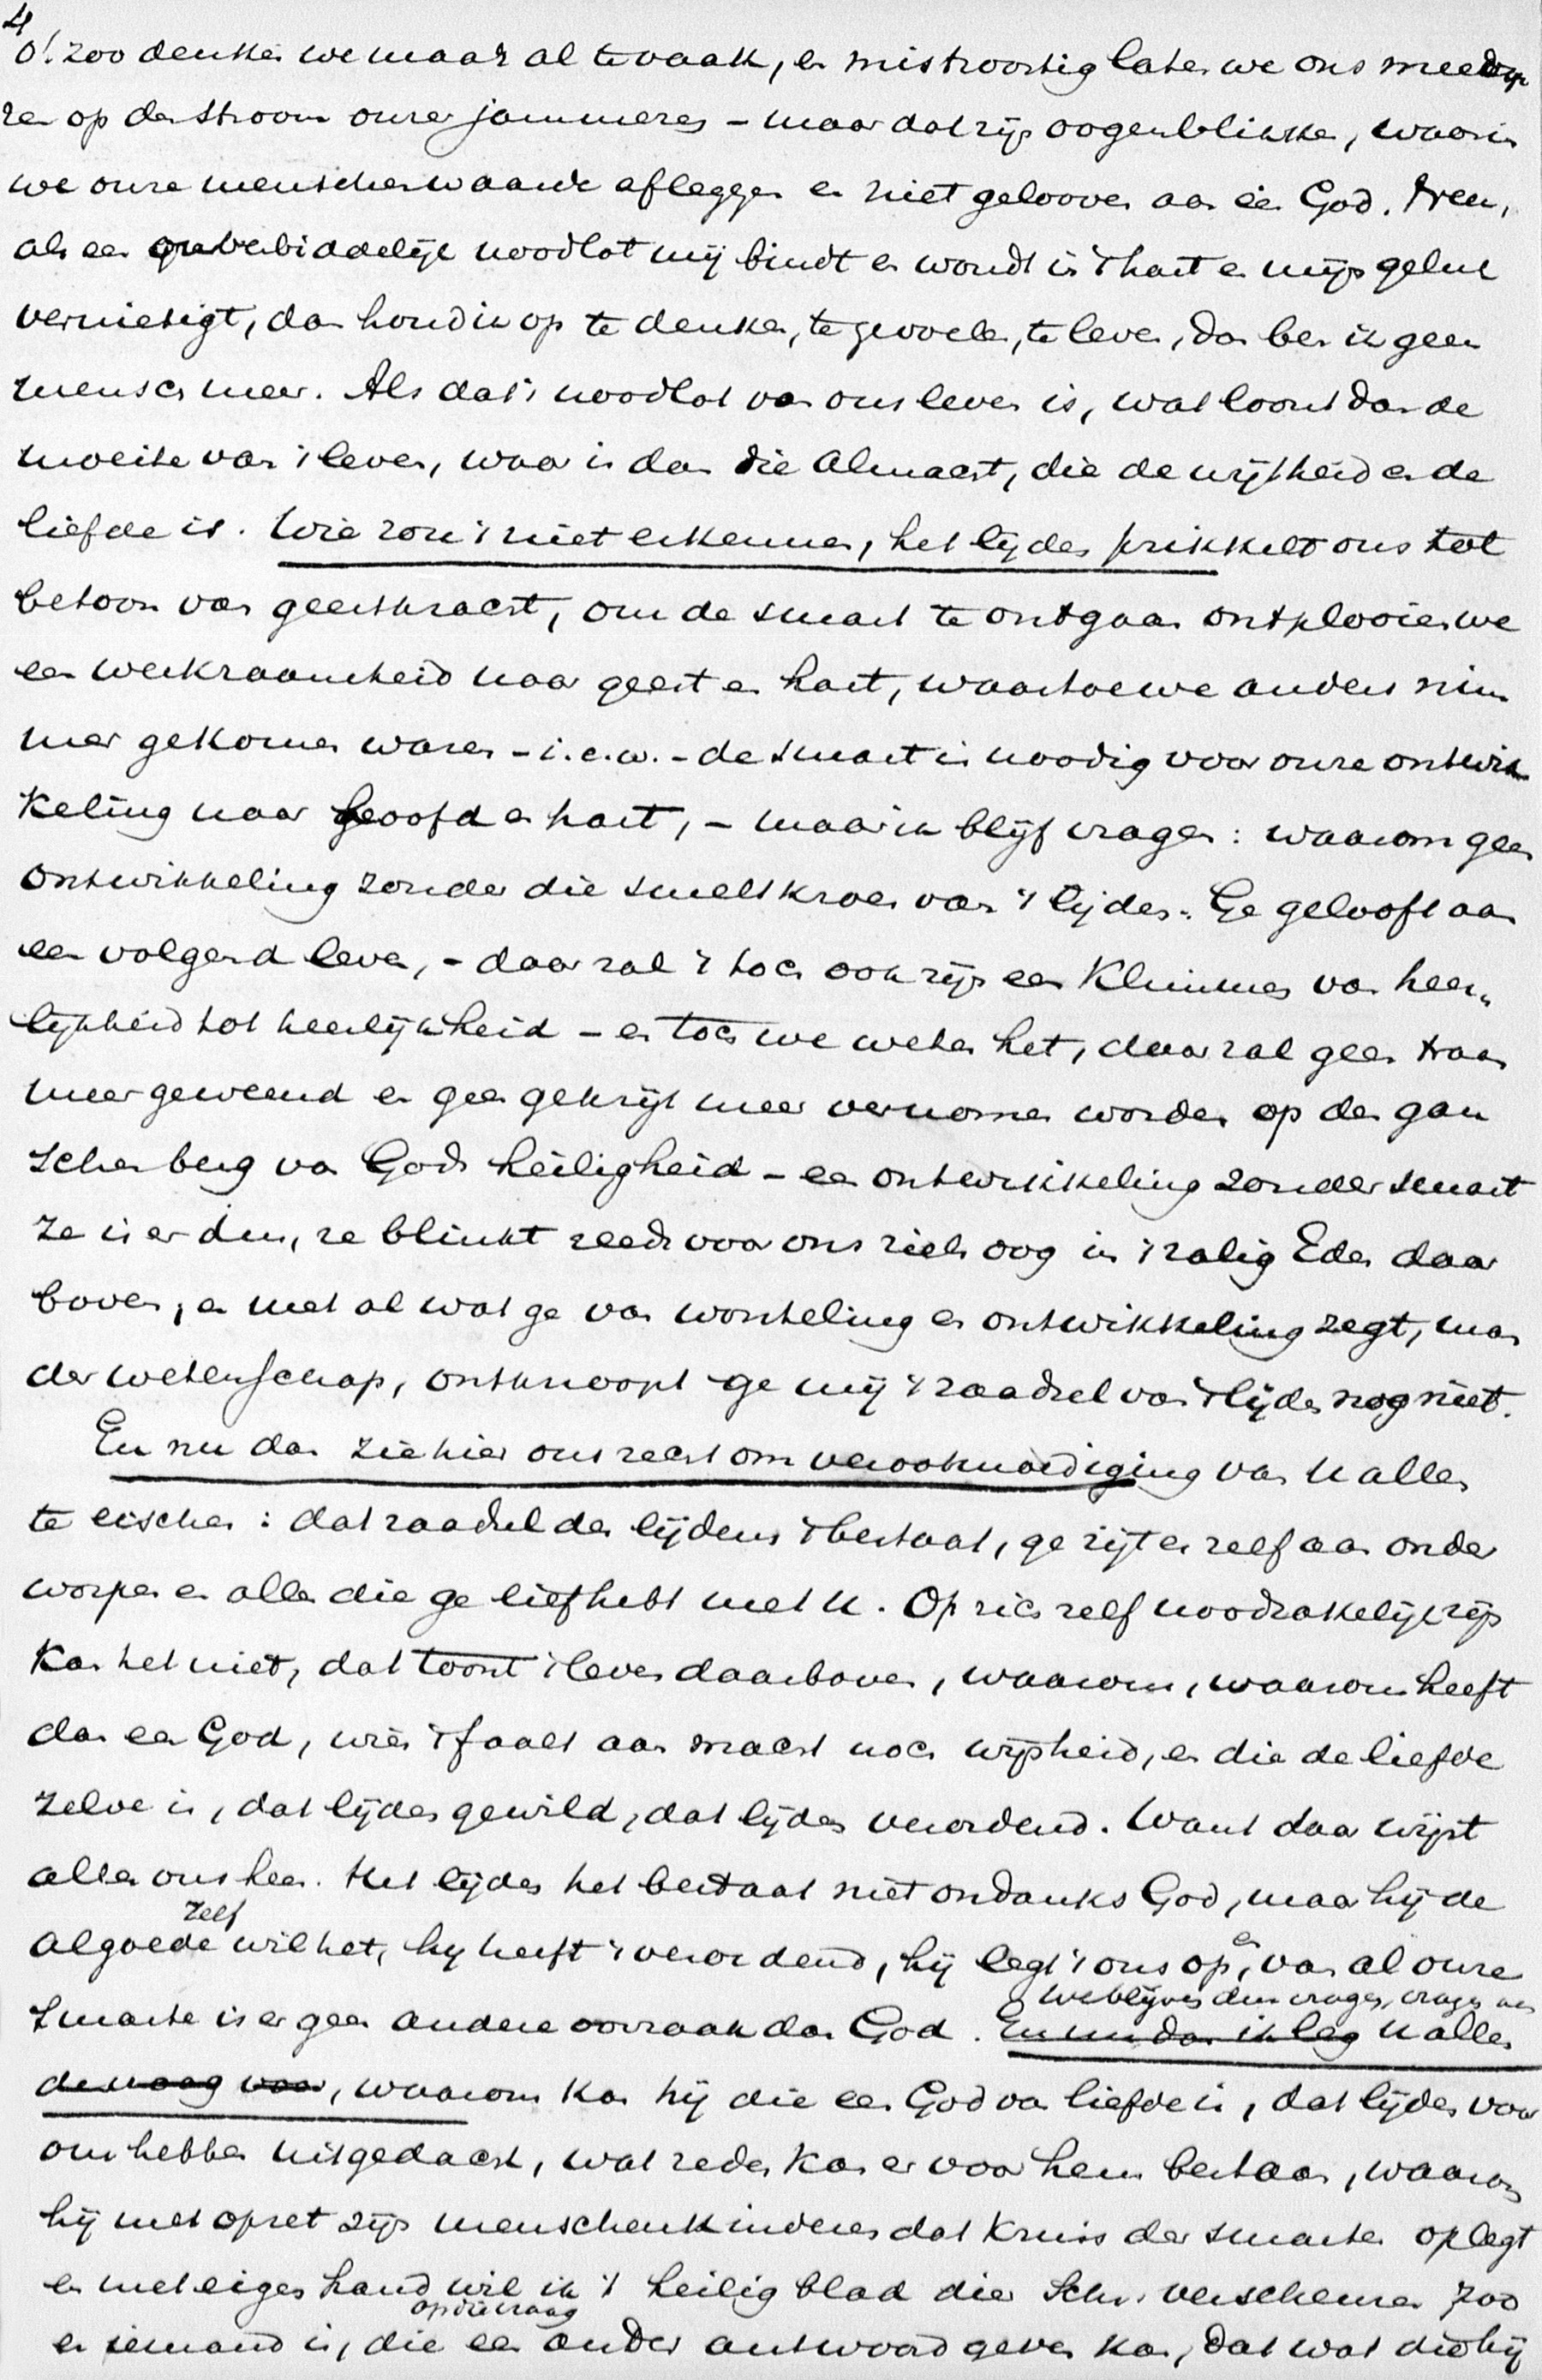 4
O! zoo denken we maar al te vaak, en mistroostig laten we ons meedrij
ven op den stroom onzer jammeren – maar dat zijn oogenblikken, waarin
we onze menschenwaarde afleggen en niet gelooven aan één God. Neen,
als een onverbiddelijk noodlot mij bindt en wondt in 't hart en mijn geluk
vernietigt, dan houd ik op te denken, te gevoelen, te leven, dan ben ik geen
mensch meer. Als dat 't noodlot van ons leven is, wat loont dan de
moeite van 't leven, waar is dan die Almacht, die de wijsheid en de
liefde is. Wie zou 't niet erkennen, het lijden prikkelt ons tot
betoon van geestkracht, om de smart te ontgaan ontplooien we
een werkzaamheid naar geest en hart, waartoe we anders nim
mer gekomen waren – i.e.w. – de smart is noodig voor onze ontwik
keling naar hoofd en hart, – maar ik blijf vragen: waarom geen
ontwikkeling zonder die smeltkroes van 't lijden. Ge gelooft aan
een volgend leven, – daar zal 't toch ook zijn een klimmen van heer„
lijkheid tot heerlijkheid – en toch we weten het, daar zal geen traan
meer geweend en geen gekrijt meer vernomen worden op den gan
schen berg van Gods heiligheid – een ontwikkeling zonder smart
ze is er dus, ze blinkt reeds voor ons ziels oog in 't zalig Eden daar
boven, en met al wat ge van worsteling en ontwikkeling zegt, man
der wetenschap, ontknoopt ge mij 't raadsel van 't lijden nog niet.
En nu dan ziehier ons recht om verootmoediging van U allen
te eischen: dat raadsel des lijdens 't bestaat, ge zijt er zelf aan onder
worpen en allen die ge liefhebt met U. Op zich zelf noodzakelijk zijn
kan het niet, dat toont 't leven daarboven, waarom, waarom heeft
dan een God, wien 't faalt aan macht noch wijsheid, en die de liefde
zelve is, dat lijden gewild, dat lijden verordend. Want daar wijst
alles ons heen. Het lijden het bestaat niet ondanks God, maar hij de
Algoede zelf wil het, hij heeft 't verordend, hij legt 't ons op, en van al onze
smarte is er geen andere oorzaak dan God. We blijven dus vragen, vragen aan En nu dan ik leg U allen
de vraag voor, waarom kan hij die een God van liefde is, dat lijden voor
ons hebben uitgedacht, wat reden kan er voor hem bestaan, waarom
hij met opzet zijn menschenkinderen dat kruis der smarten oplegt
en met eigen hand wil ik 't heilig blad dier Schr. verscheuren zoo
er iemand is, die een ander antwoord op die vraag geven kan, dat wat die hij